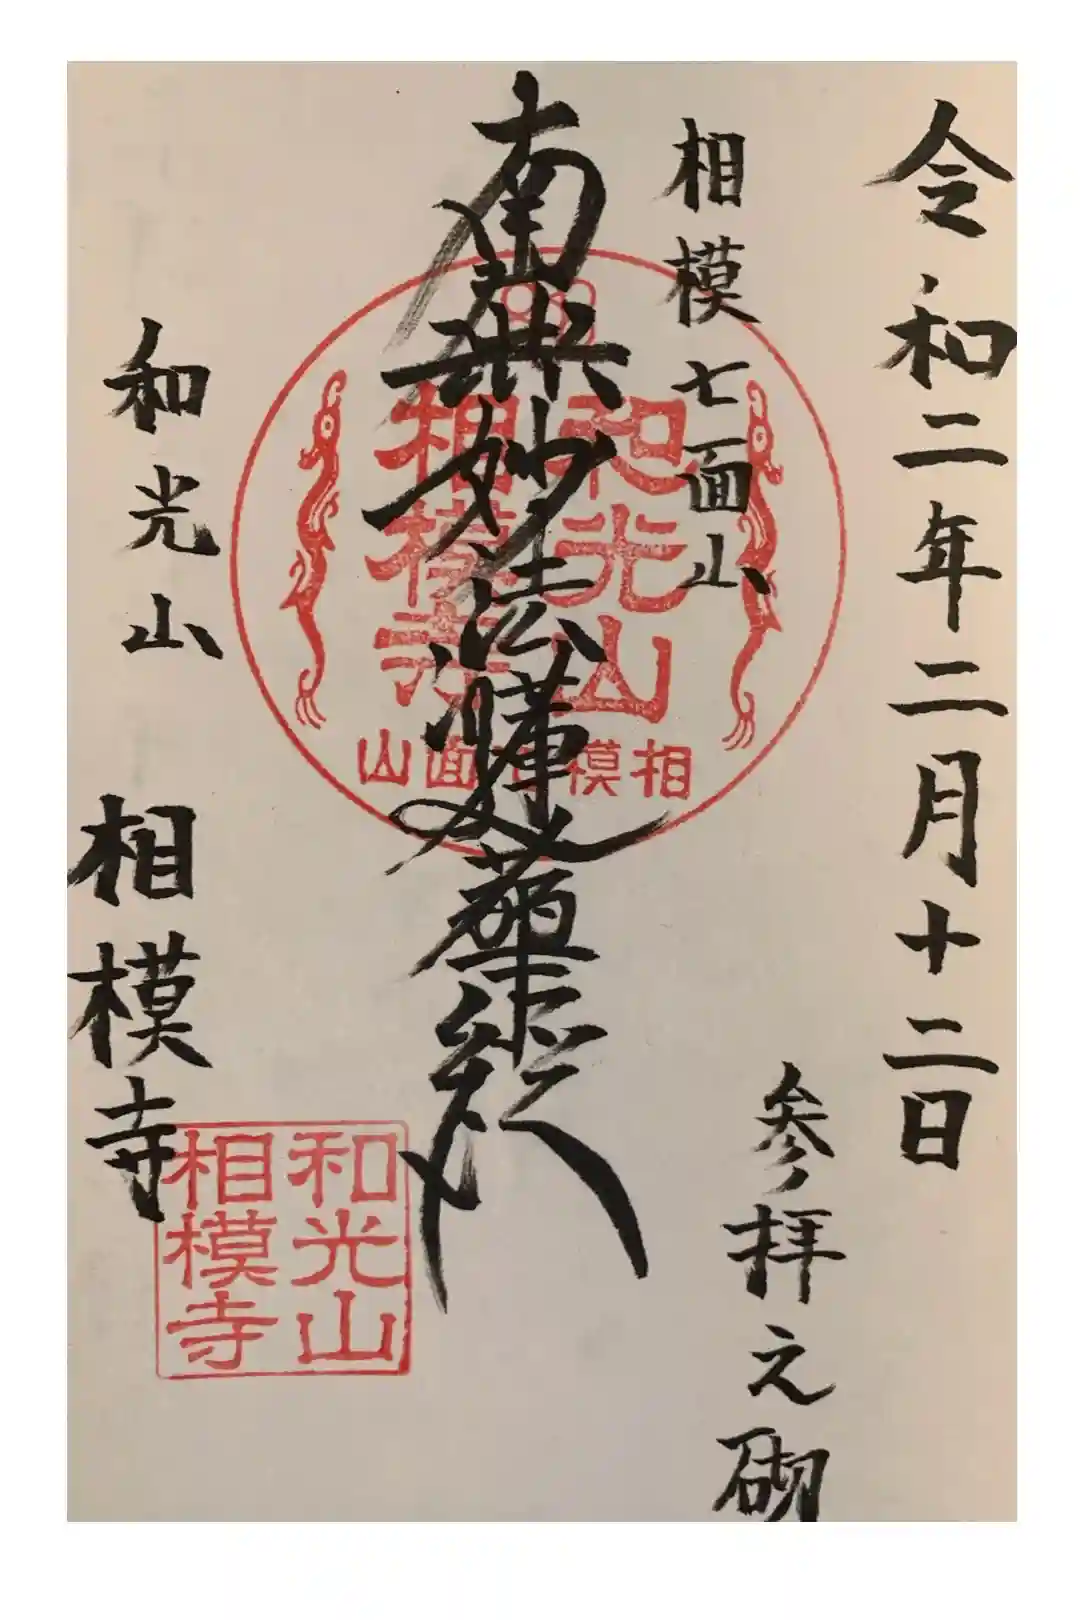 令和二年二月十二日
参拝之砌
相模七面山
南無妙法蓮華経
和光山
相模寺
相模七面山
和光山 相模寺
和光山
相模寺